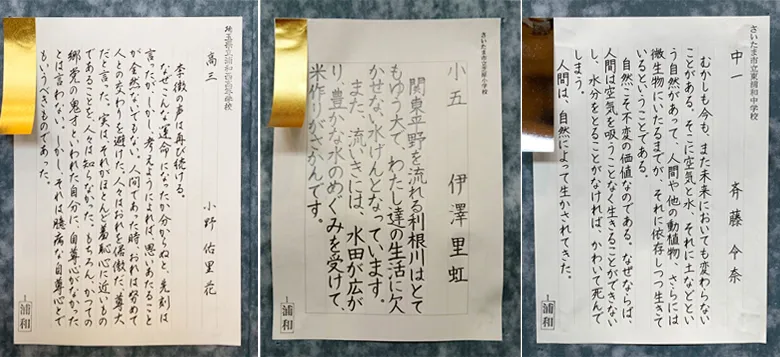 埼玉県立浦和西高等学校
高三 小野佑里花
李徴の声は再び続ける。
なぜこんな運命になったか分からぬと、先刻は
言ったが、しかし、考えようによれば、思いあたること
が全然ないでもない。人間であった時、おれは努めて
人との交わりを避けた。人々はおれを倨傲だ、尊大
だと言った。実はそれがほとんど羞恥心に近いもの
であることを、人々は知らなかった。もちろん、かつての
郷党の鬼才といわれた自分に、自尊心がなかった
とは言わない。しかし、それは臆病な自尊心とで
もいうべきものであった。
浦和
さいたま市立芝原小学校
小五 伊澤里虹
関東平野を流れる利根川はとて
もゆう大で、わたし達の生活に欠
かせない水げんとなっています。
また、流いきには、水田が広が
り、豊かな水のめぐみを受けて、
米作りがさかんです。
浦和
さいたま市立東浦和中学校
中一 斉藤令奈
むかしも今も、また未来においても変わらない
ことがある。そこに空気と水、それに土などとい
う自然があって、人間や他の動植物、さらには
微生物にいたるまでが、それに依存しつつ生きて
いるということである。
自然こそ不変の価値なのである。なぜならば、
人間は空気を吸うことなく生きることができない
し、水分をとることがなければ、かわいて死んで
しまう。
人間は、自然によって生かされてきた。
浦和